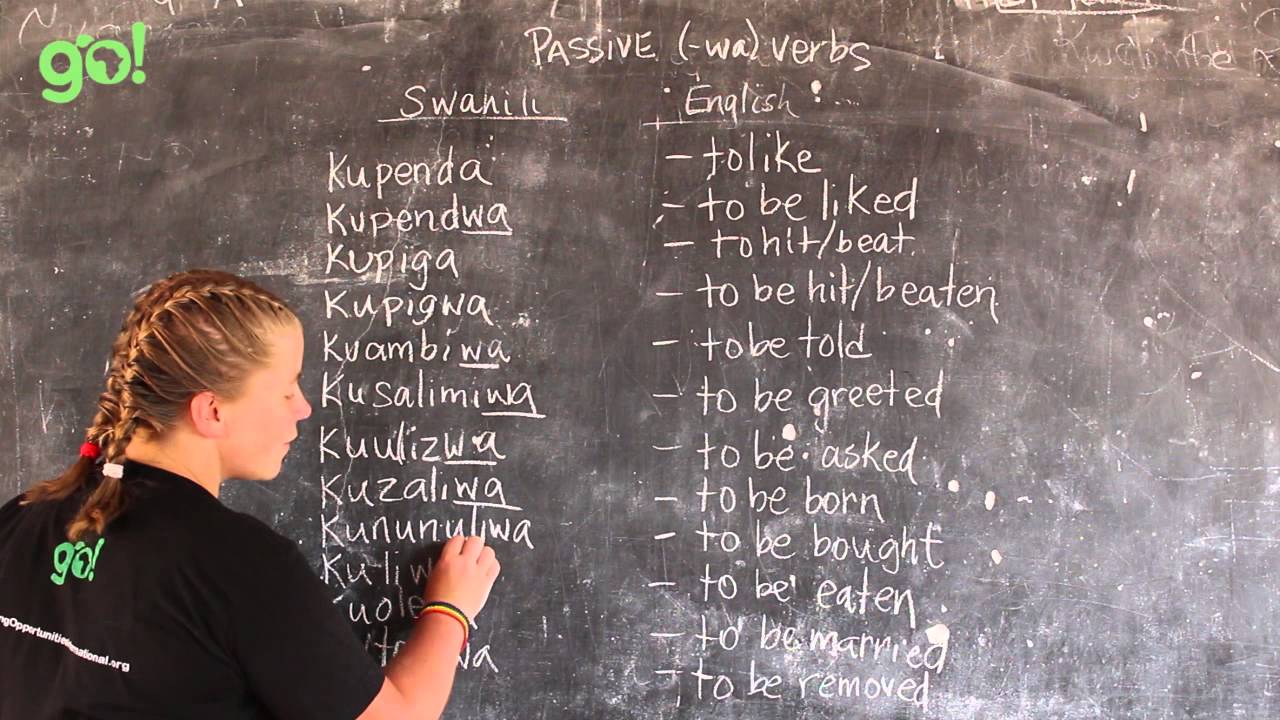 go!
PASSIVE (-wa) verbs
Swahili English
Kupenda - to like
Kupendwa - to be liked
Kupiga - to hit/beat
Kupigwa - to be hit/beaten
Kuambiwa - to be told
Kusalimiwa - to be greeted
Kuulizwa - to be asked
Kuzaliwa - to be born
Kununuliwa - to be bought
- to be eaten
- to be married
- to be removed
go!